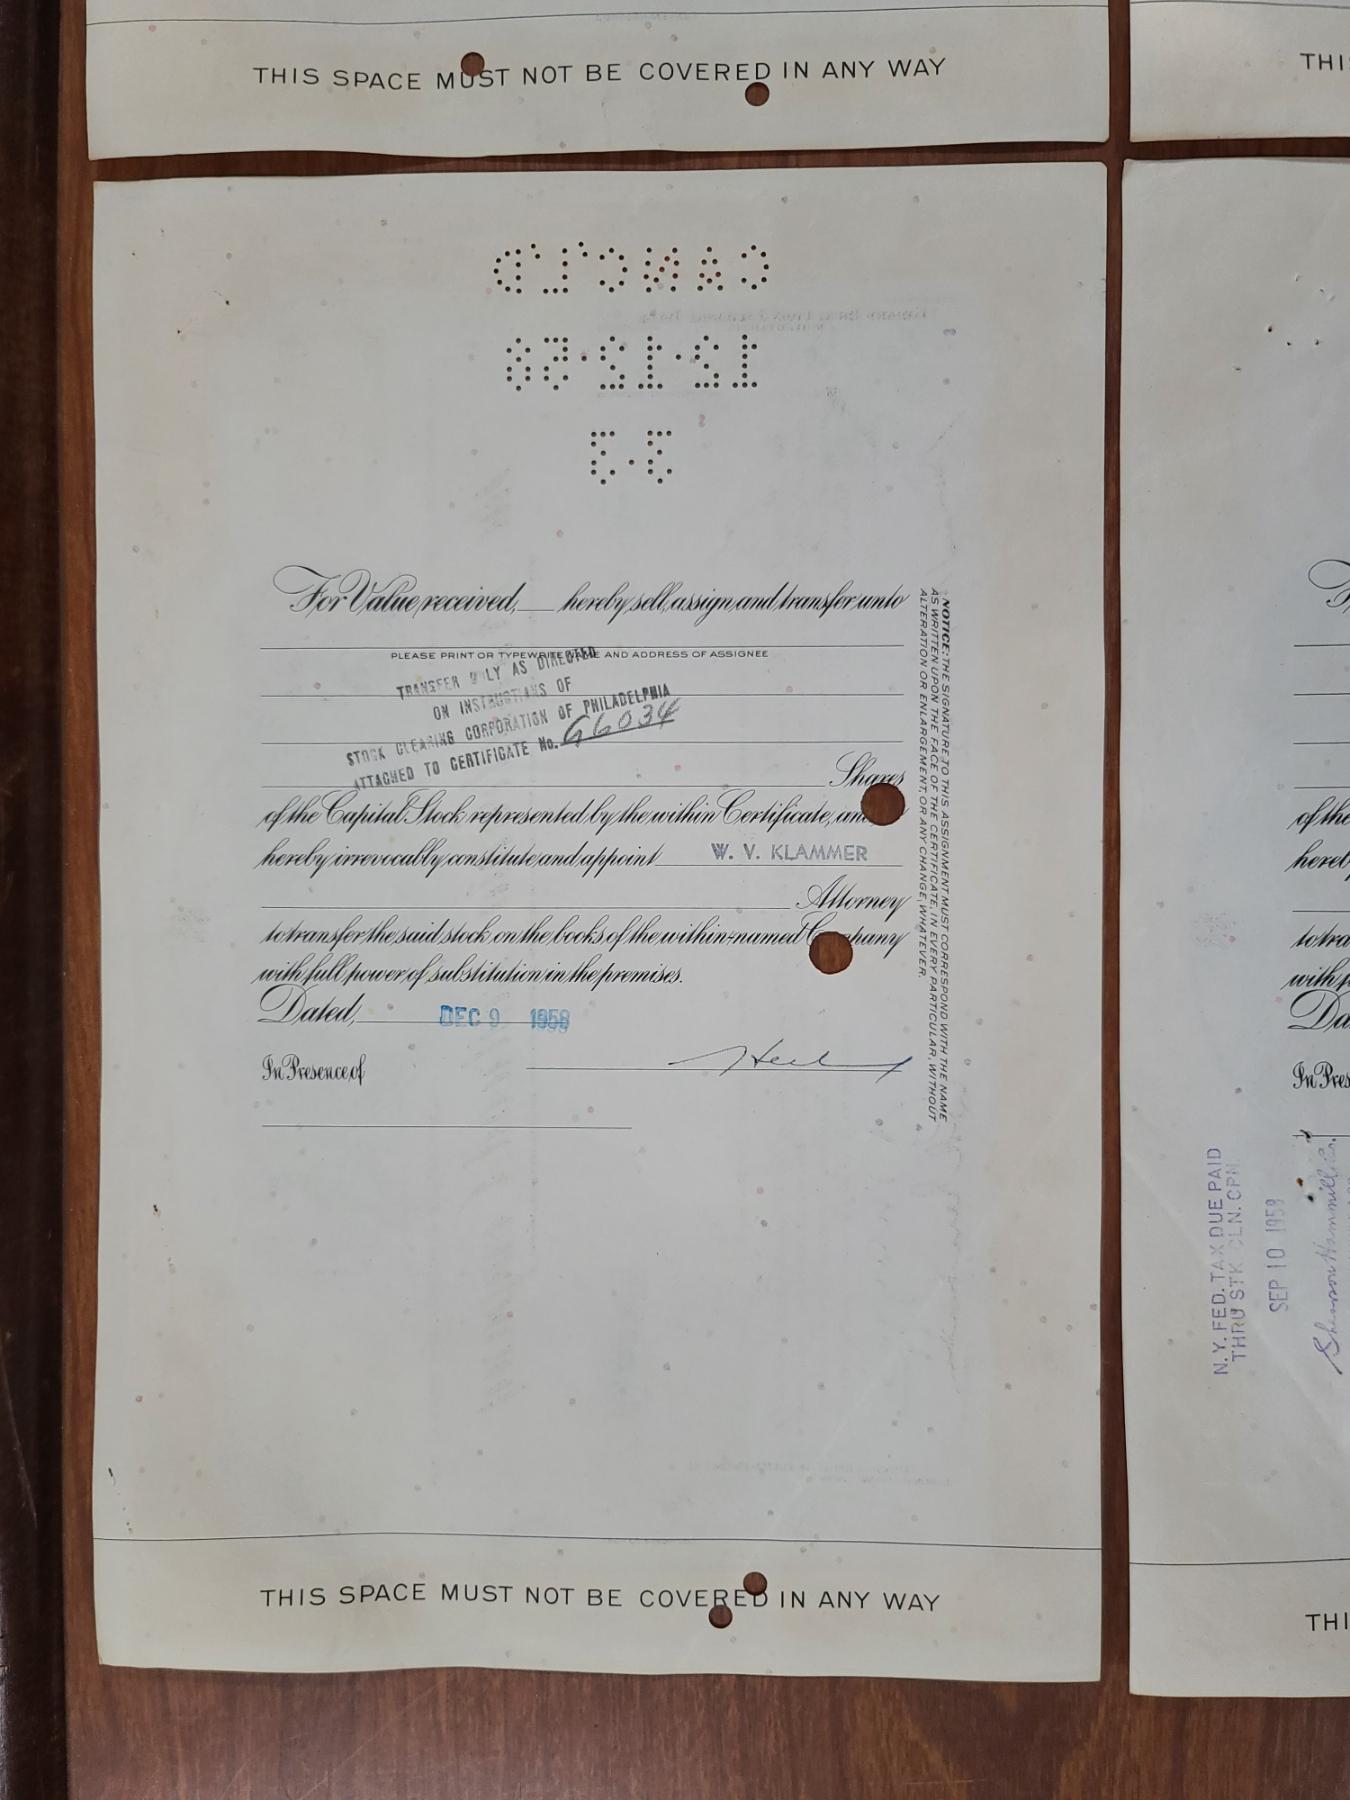 THIS SPACE MUST NOT BE COVERED IN ANY WAY
THI
CANC'L'D
12·12·58
3·3
For Value received, hereby sell, assign and transfer unto
PLEASE PRINT OR TYPEWRITE NAME AND ADDRESS OF ASSIGNEE
TRANSFER ONLY AS DIRECTED
ON INSTRUCTIONS OF
STOCK CLEARING CORPORATION OF PHILADELPHIA
ATTACHED TO CERTIFICATE No. G6034
Shares
of the Capital Stock represented by the within Certificate, and
hereby irrevocably constitute and appoint W. V. KLAMMER
Attorney
to transfer the said stock on the books of the within-named Company
with full power of substitution in the premises.
Dated, DEC 9 1958
In Presence of
NOTICE: THE SIGNATURE TO THIS ASSIGNMENT MUST CORRESPOND WITH THE NAME
AS WRITTEN UPON THE FACE OF THE CERTIFICATE, IN EVERY PARTICULAR, WITHOUT
ALTERATION OR ENLARGEMENT, OR ANY CHANGE, WHATEVER.
THIS SPACE MUST NOT BE COVERED IN ANY WAY
of the
hereb
to tra
with p
Da
In Pres
N. Y. FED. TAX DUE PAID
THRU STK. CLN. CPN.
SEP 10 1958
THI